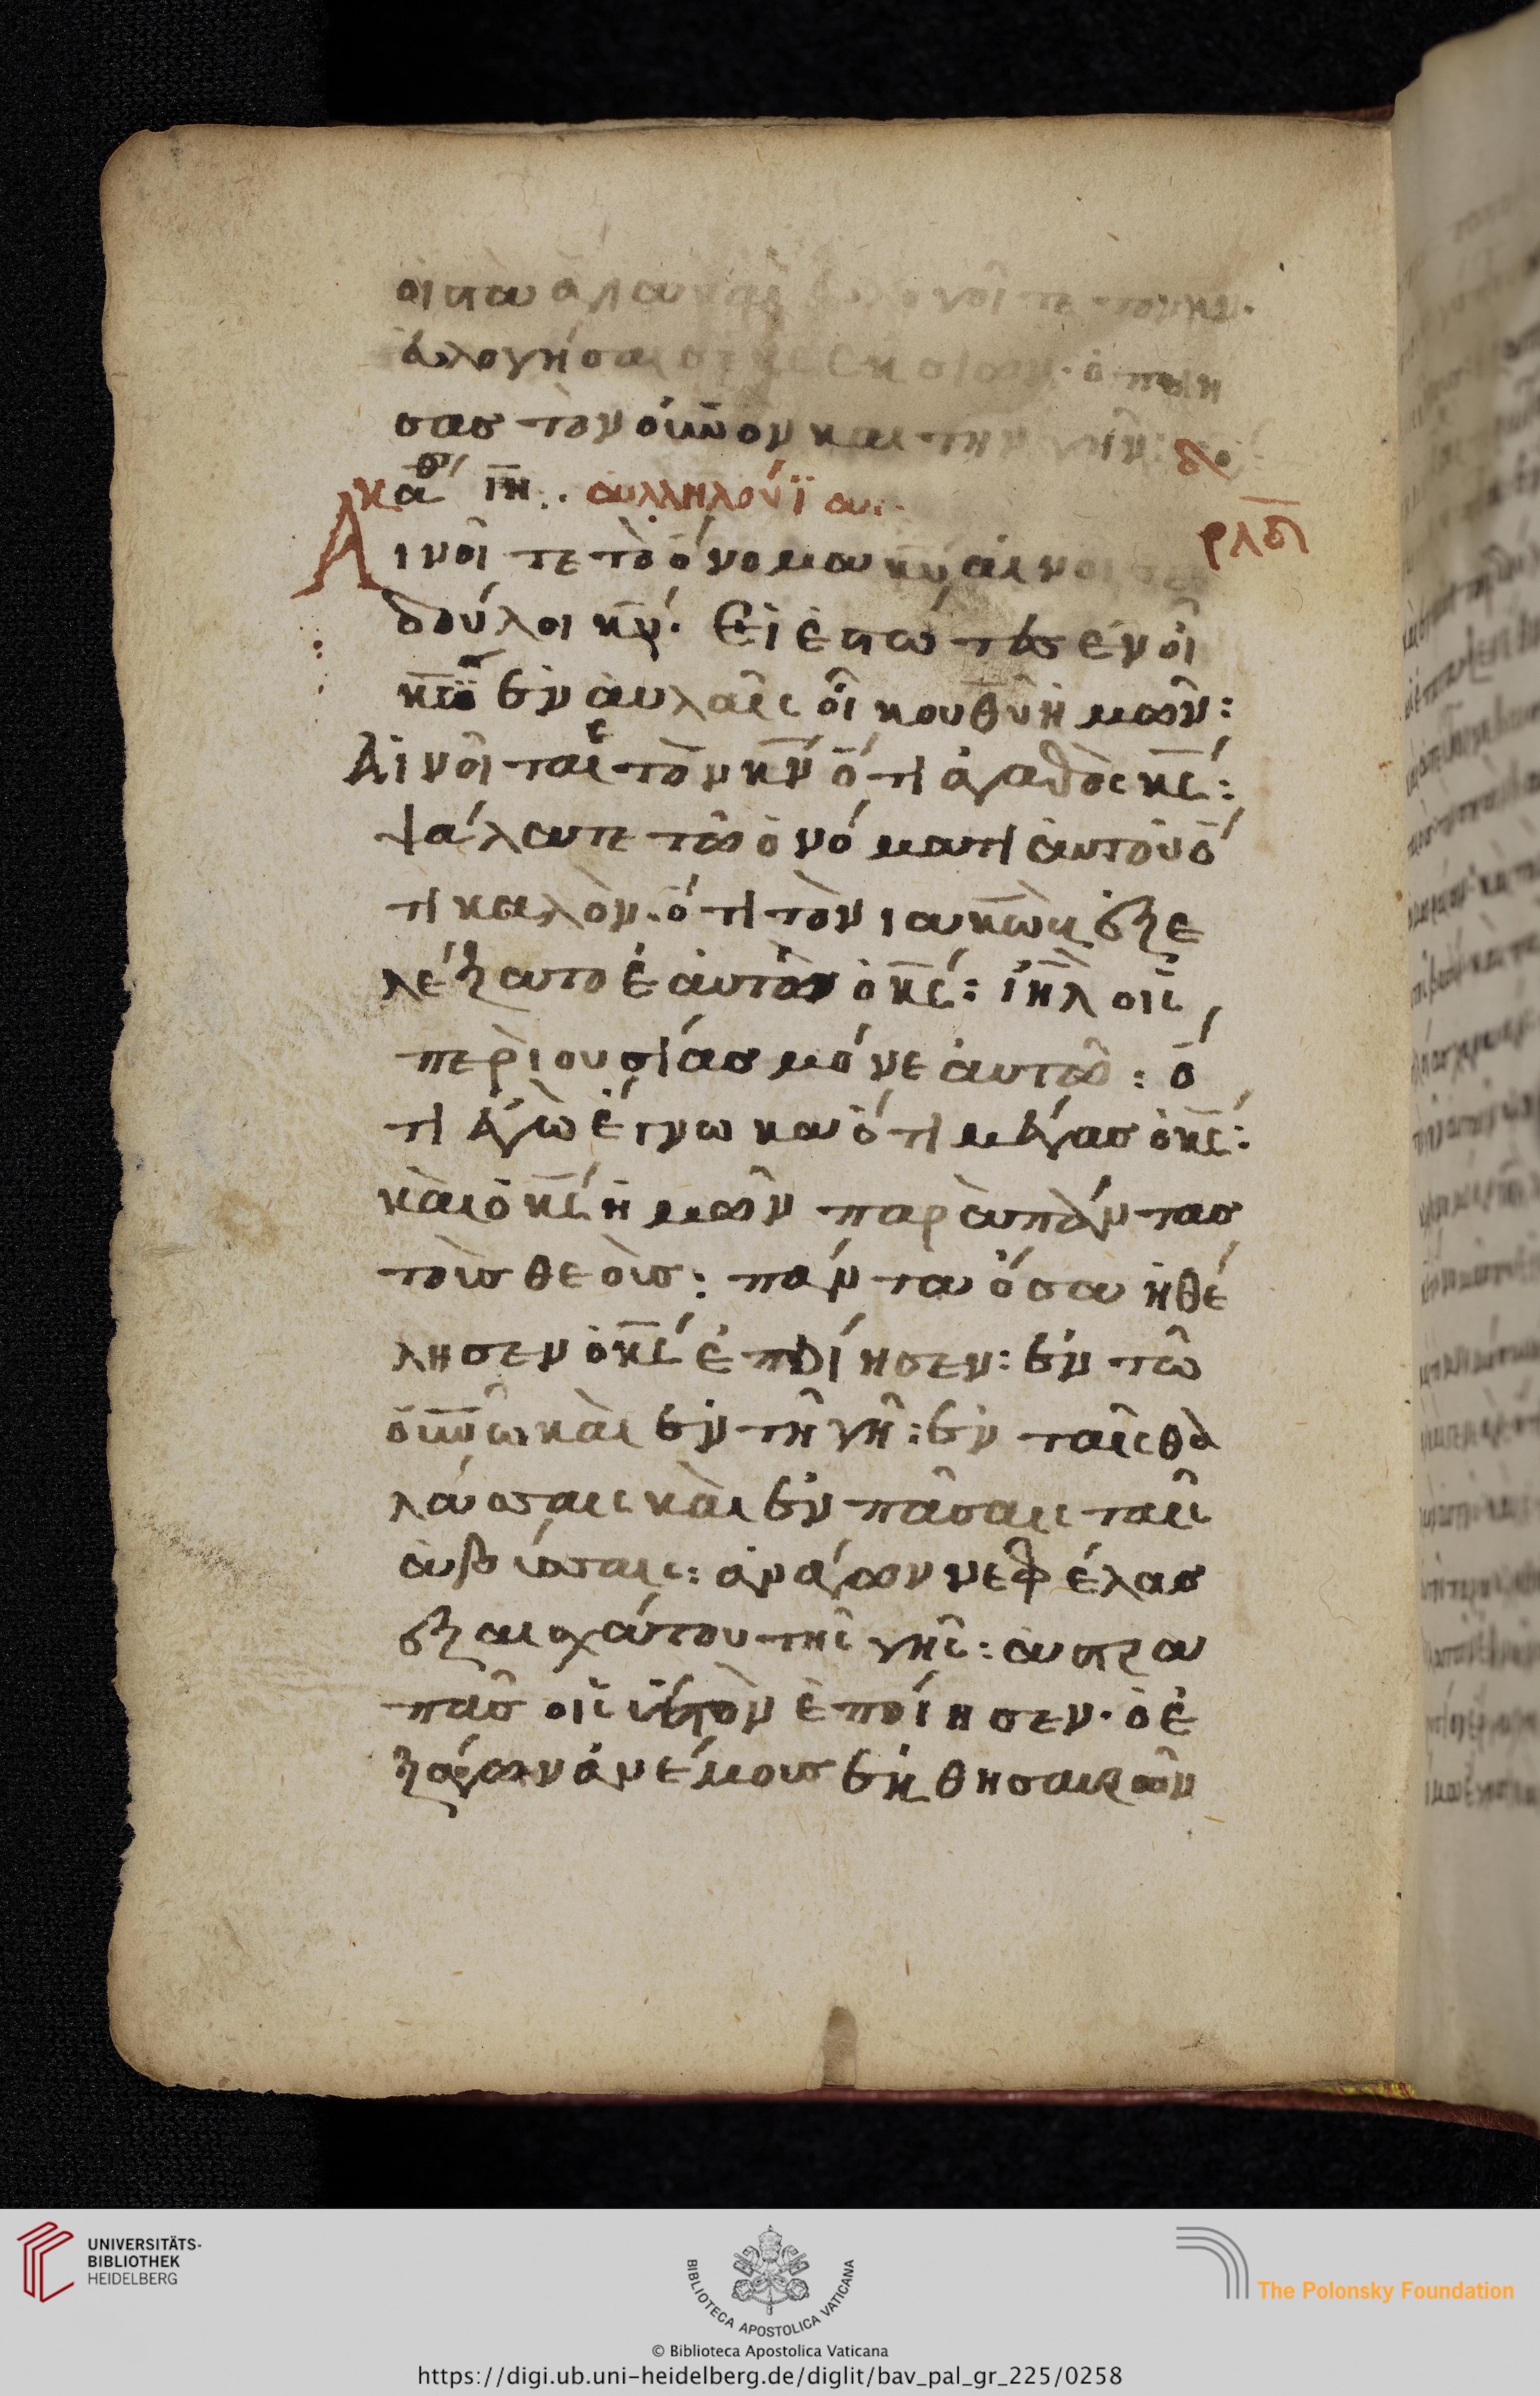 ἁγια
ἐυλογήσαι σε κς ἐκ σιων· ὁ ποιη
σας τὸν ουνον και την γῆν: δο
καθ ιη: ἀλληλούϊα
Αινοῖτε τὸ ὄνομα κυ αἰνοι ρλδ
δούλοι κυ· Οἱ ἑστώτες ἐν οἴ
κω κυ ἐν ἀυλαῖς οἴκου θυ ἡμῶν:
Αἰνοῖται τὸν κν ὅτι ἀγαθὸς κς:
ψάλατε τῶ ὀνόματι ἀυτοῦ ὅ
τι καλὸν· ὅτι τὸν ιακὼβ ἐξε
λέξατο ἑαυτῶ ὁ κς: ιηλ οἷς
περιουσίασμόνε ἀυτῶ: ὅ
τι ἐγὼ ἔγνωκα ὅτι μέγας ὁ κς:
κὰι ὁ κς ἡμῶν παρὰ πάντας
τοὺς θεοὺς: πάντα ὅσα ἠθέ
λησεν ὁ κς ἐποίησεν: ἐν τῶ
ουνῶ κὰι ἐν τῆ γῆ: ἐν ταῖς θα
λάσσαις κὰι ἐν πᾶσαις ταῖς
ἀβύσσαις: ἀνάγων νεφέλας
ἐξ αισχάτου τῆς γῆς: αστρα
πὰς οἷς ὑετὸν ἐποίησεν· ὁ ἐ
ξάγων ἀνέμους ἐκ θησαυρῶν
UNIVERSITÄTS-
BIBLIOTHEK
HEIDELBERG
BIBLIOTECA APOSTOLICA VATICANA
The Polonsky Foundation
© Biblioteca Apostolica Vaticana
https://digi.ub.uni-heidelberg.de/diglit/bav_pal_gr_225/0258